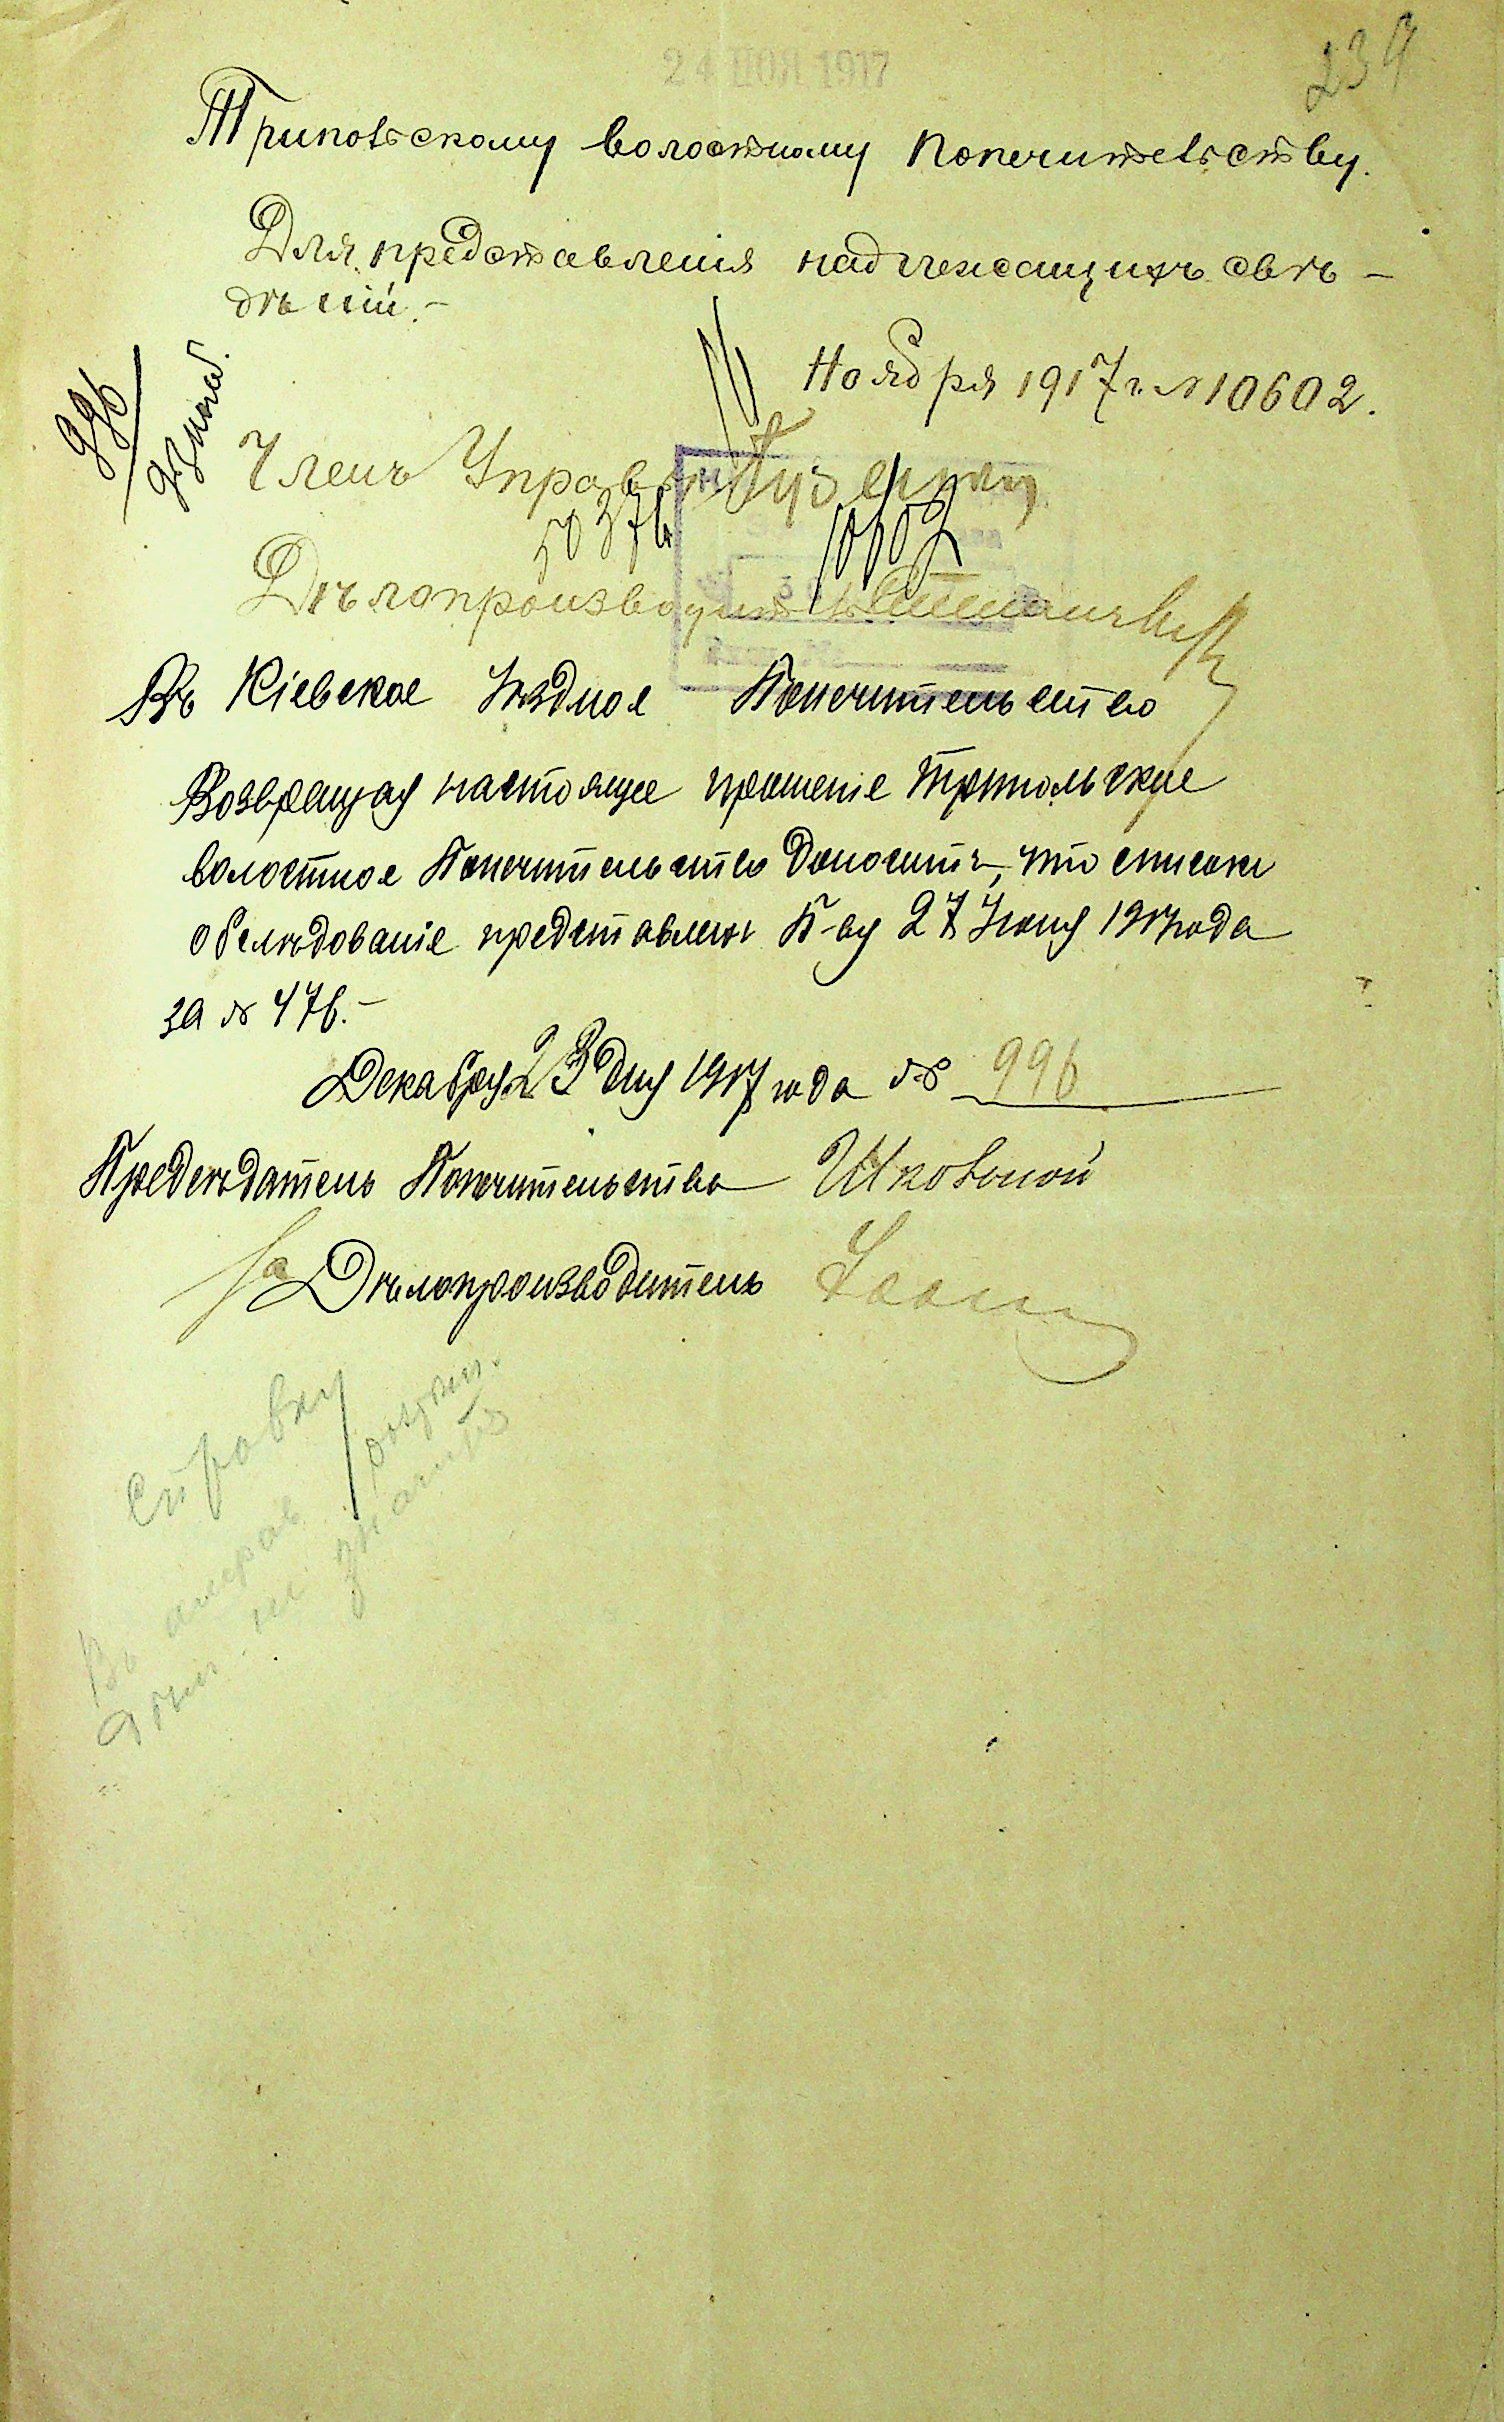 24 НОЯ 1917
Трипольскому волостному попечительству.
Для представленія надлежащихъ свѣ-
дѣній.-
Ноября 1917 г. № 10602.
Членъ Управы
10602
Дѣлопроизводитель
Въ Кіевское Уѣздное Попечительство
Возвращая настоящее прошеніе Трипольское
волостное Попечительство доноситъ, что списокъ
обслѣдованіе представленъ П-ву 27 Іюня 1917 года
за № 476.-
Декабря 23 дня 1917 года № 996
Предсѣдатель Попечительства
За Дѣлопроизводитель
Справку